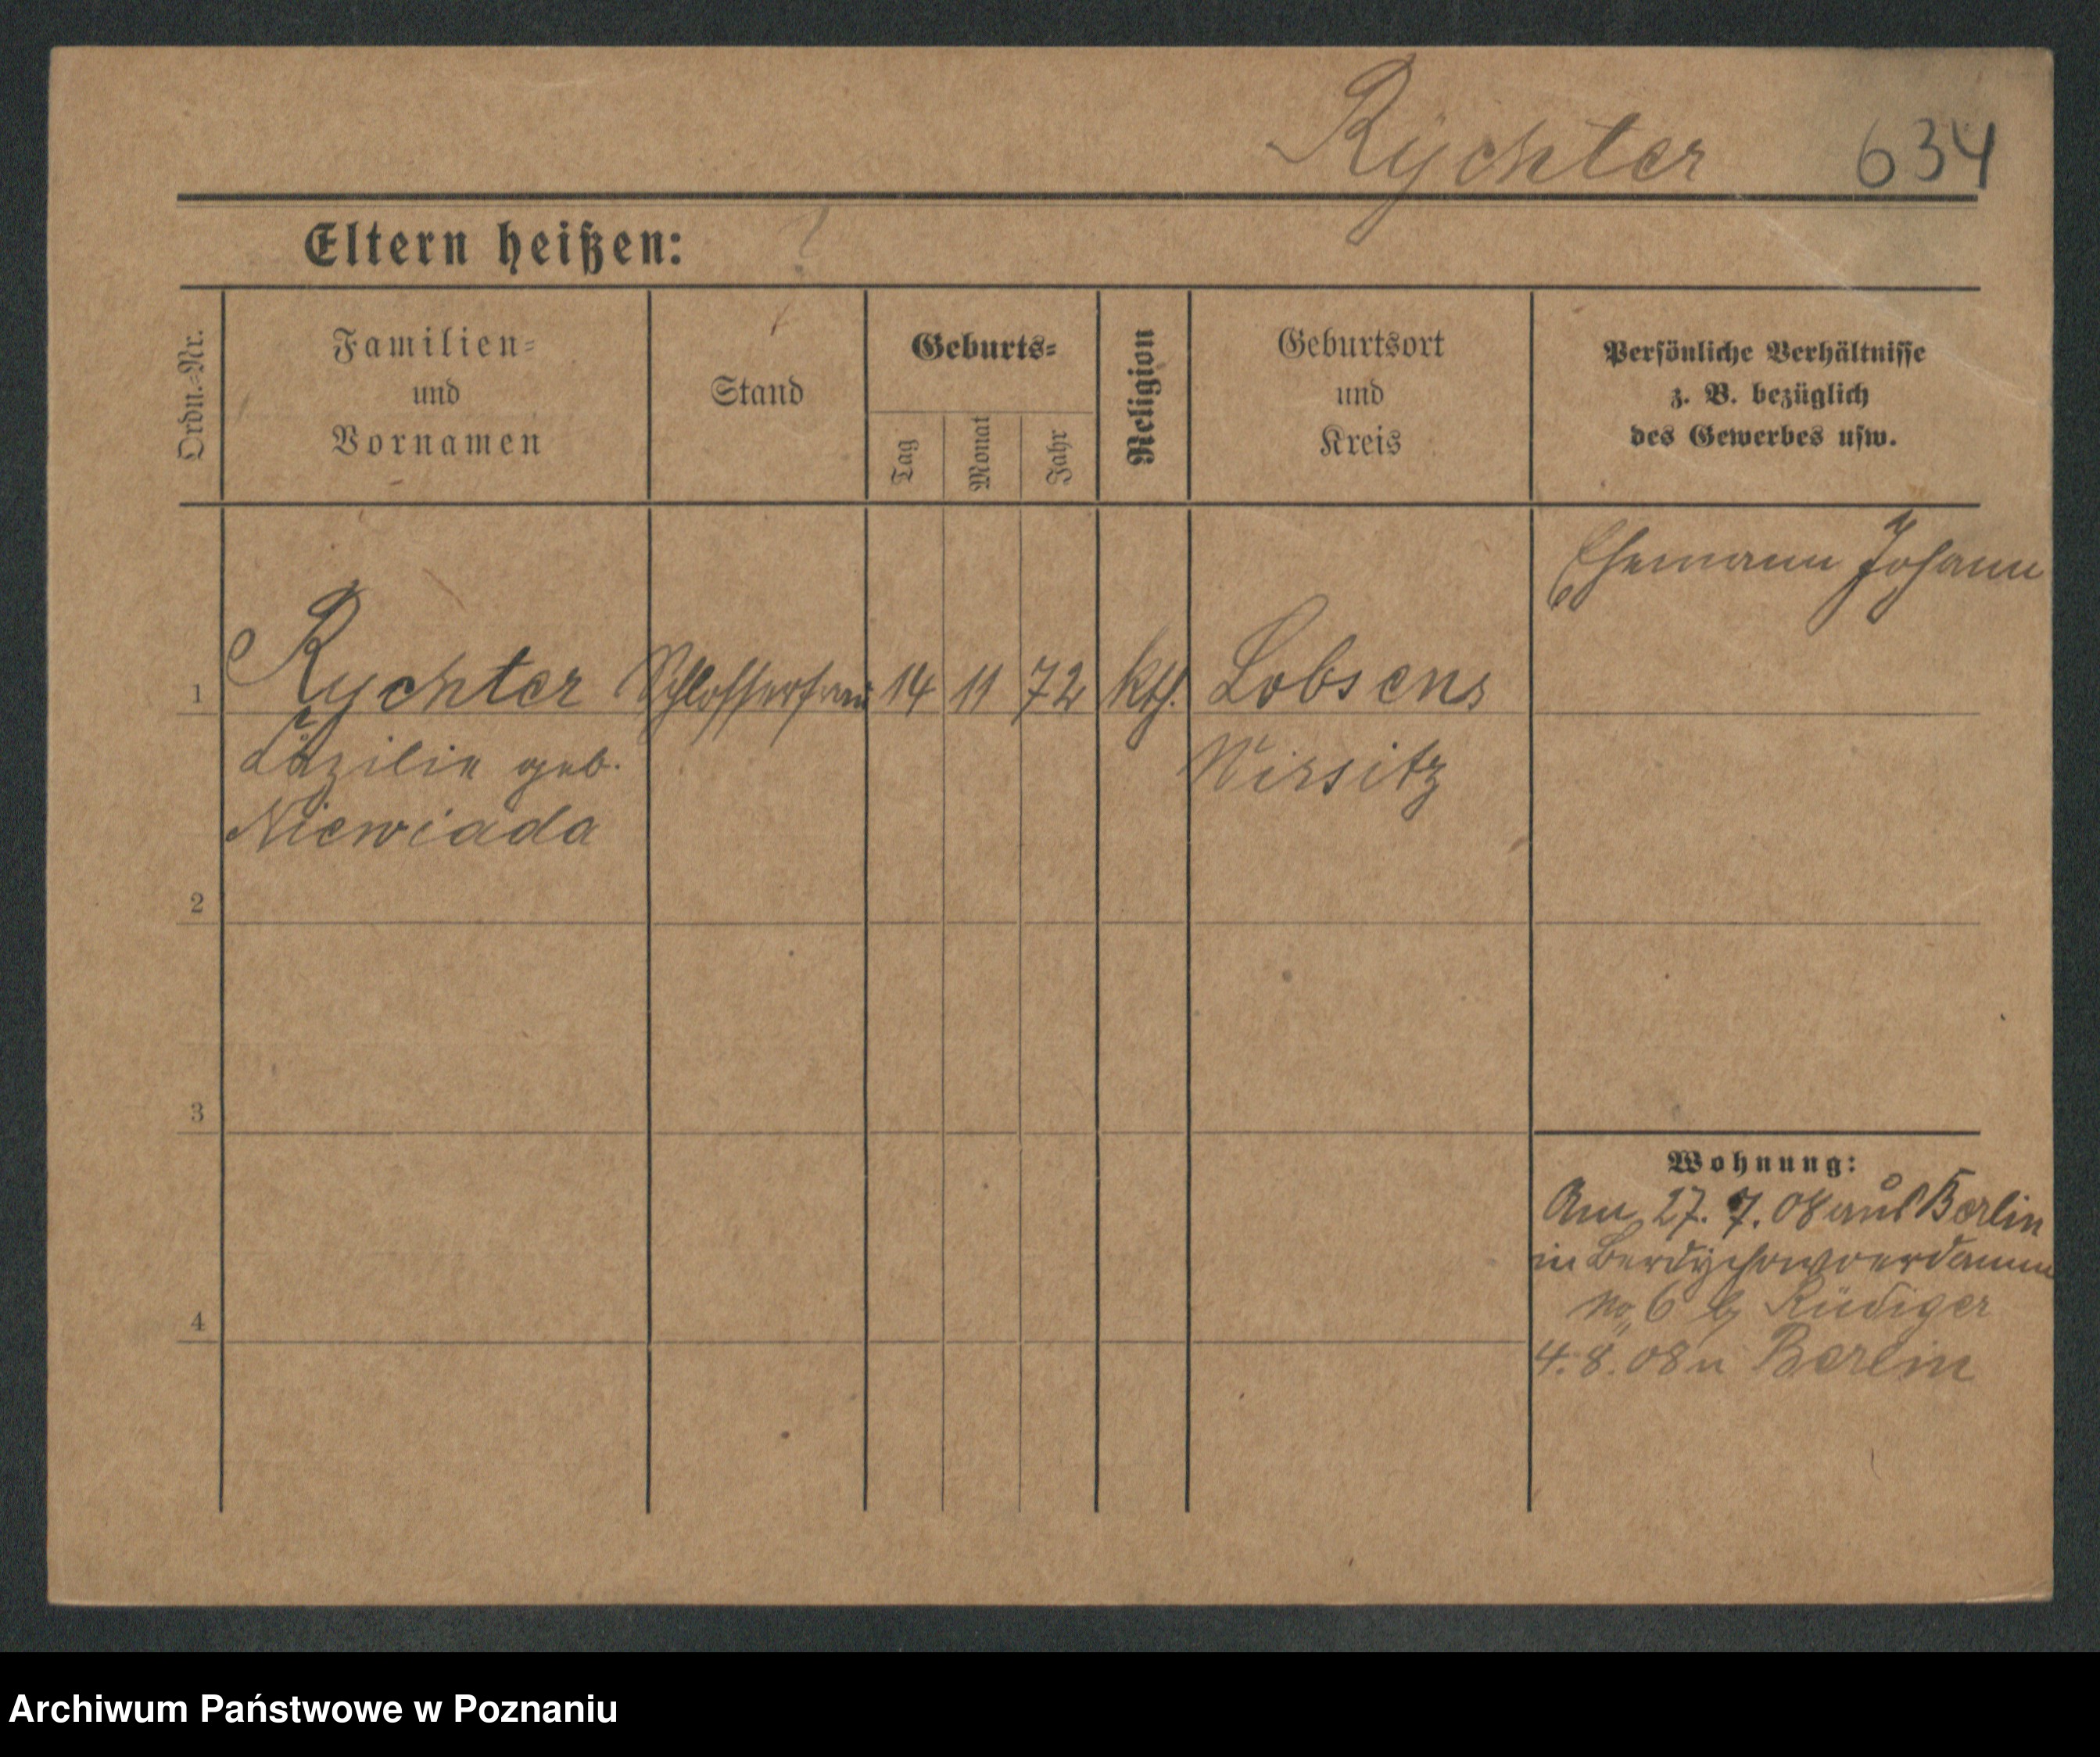 Rychter 634
Eltern heißen: ?
Ordn.-Nr.
Familien-
und
Vornamen
Stand
Geburts-
Tag
Monat
Jahr
Religion
Geburtsort
und
Kreis
Persönliche Verhältnisse
z. B. bezüglich
des Gewerbes usw.
Ehemann Johann
1 Rychter Schlosserfrau 14 11 72 kth. Lobsens
Cäzilie geb. Wirsitz
Niewiada
2
3
Wohnung:
Am 27. 7. 08 aus Berlin
in Berdychowoerdamm
No 6 b Rüdiger
4
4. 8. 08 n Berlin
Archiwum Państwowe w Poznaniu